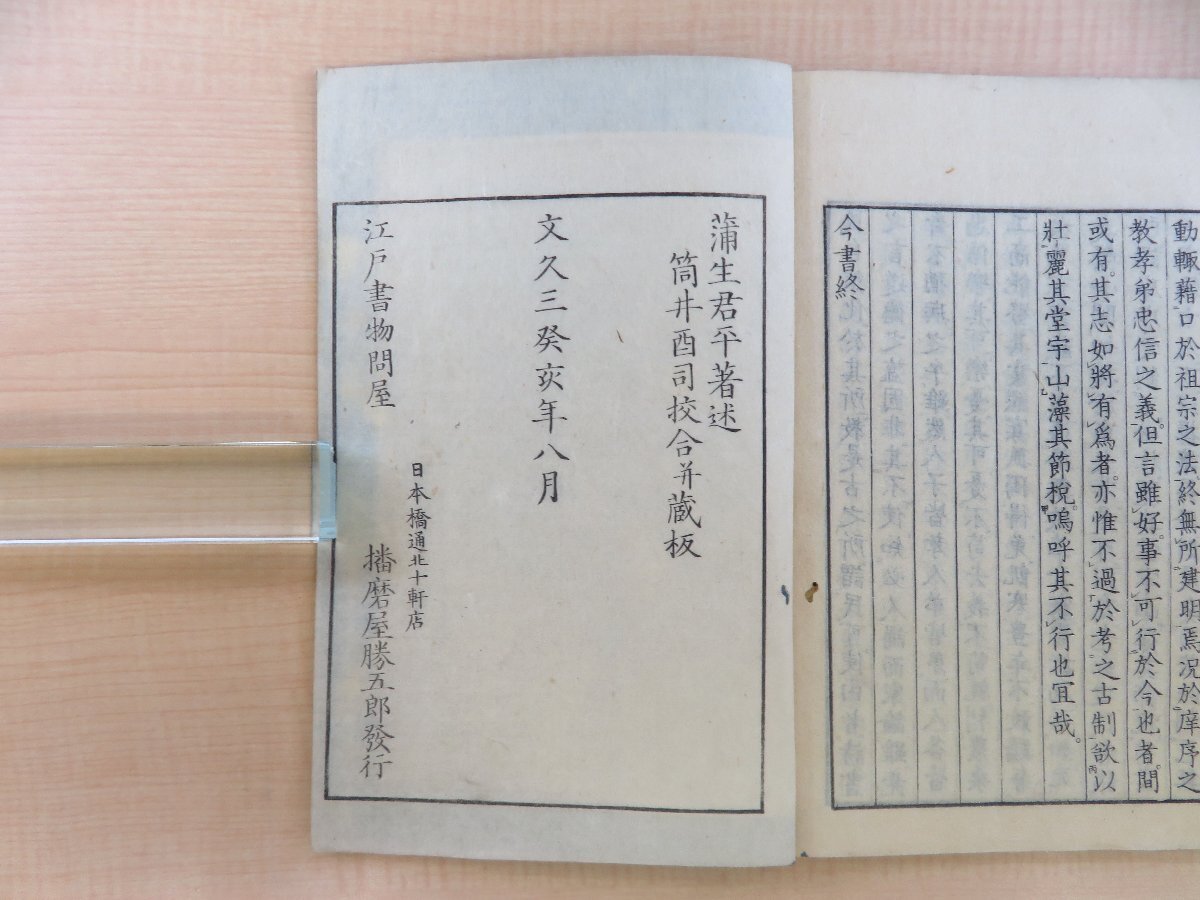 動輙藉口於祖宗之法終無所建明焉况於庠序之
教孝弟忠信之義但言雖好事不可行於今也者間
或有其志如將有爲者亦惟不過於考之古制欲以
壯麗其堂宇山藻其節梲嗚呼其不行也宜哉
今書終
蒲生君平著述
筒井酉司挍合并蔵板
文久三癸亥年八月
日本橋通北十軒店
江戸書物問屋 播磨屋勝五郎發行